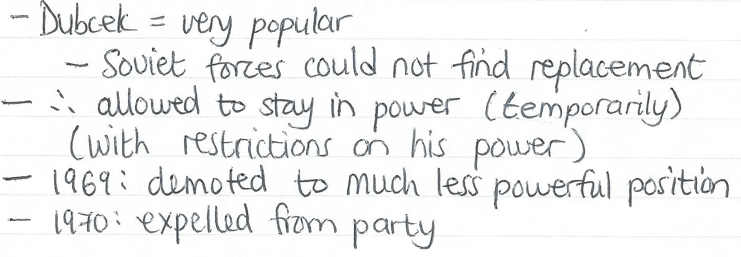 - Dubcek = very popular
- Soviet forces could not find replacement
- ∴ allowed to stay in power (temporarily)
(with restrictions on his power)
- 1969: demoted to much less powerful position
- 1970: expelled from party